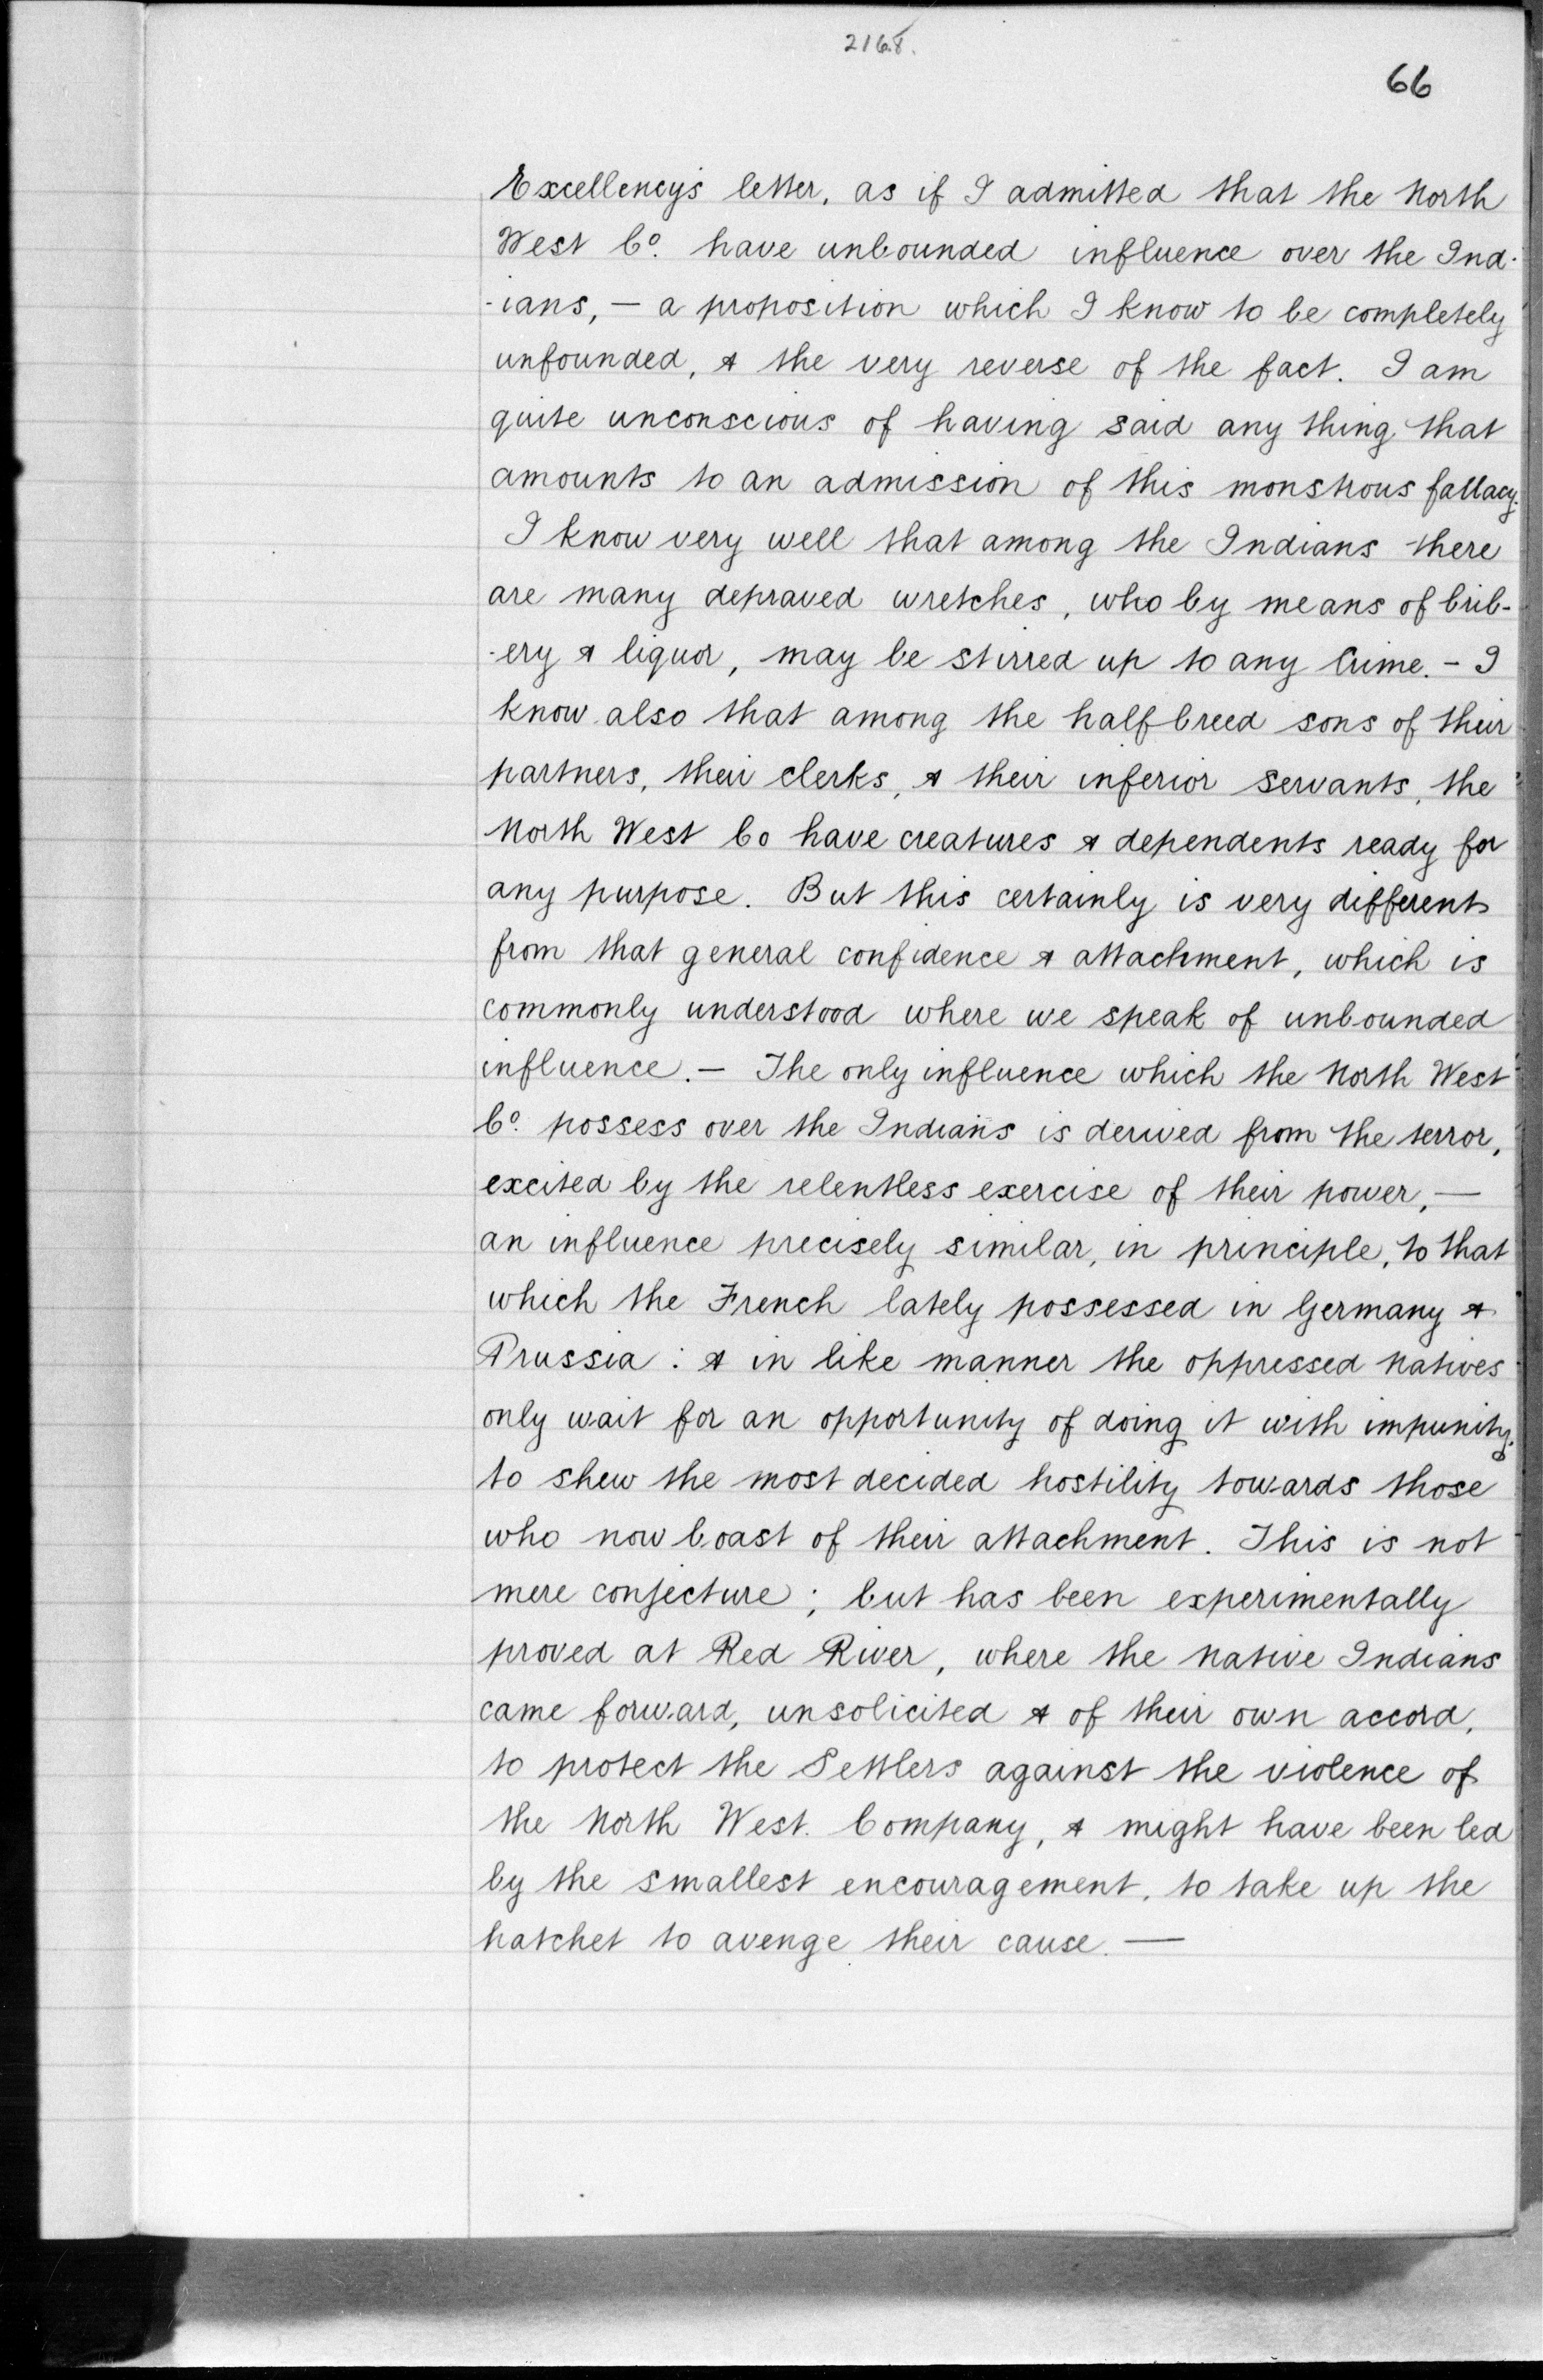 2168.
66
Excellency's letter, as if I admitted that the North
West Co. have unbounded influence over the Ind-
-ians, — a proposition which I know to be completely
unfounded, & the very reverse of the fact. I am
quite unconscious of having said any thing that
amounts to an admission of this monstrous fallacy.
I know very well that among the Indians there
are many depraved wretches, who by means of brib-
-ery & liquor, may be stirred up to any Crime. - I
know also that among the half breed sons of their
partners, their clerks, & their inferior servants, the
North West Co have creatures & dependents ready for
any purpose. But this certainly is very different
from that general confidence & attachment, which is
commonly understood where we speak of unbounded
influence. — The only influence which the North West
Co. possess over the Indians is derived from the terror,
excited by the relentless exercise of their power, —
an influence precisely similar, in principle, to that
which the French lately possessed in Germany &
Prussia : & in like manner the oppressed natives
only wait for an opportunity of doing it with impunity,
to shew the most decided hostility towards those
who now boast of their attachment. This is not
mere conjecture ; but has been experimentally
proved at Red River, where the native Indians
came forward, unsolicited & of their own accord,
to protect the Settlers against the violence of
the North West. Company, & might have been led
by the smallest encouragement, to take up the
hatchet to avenge their cause. —